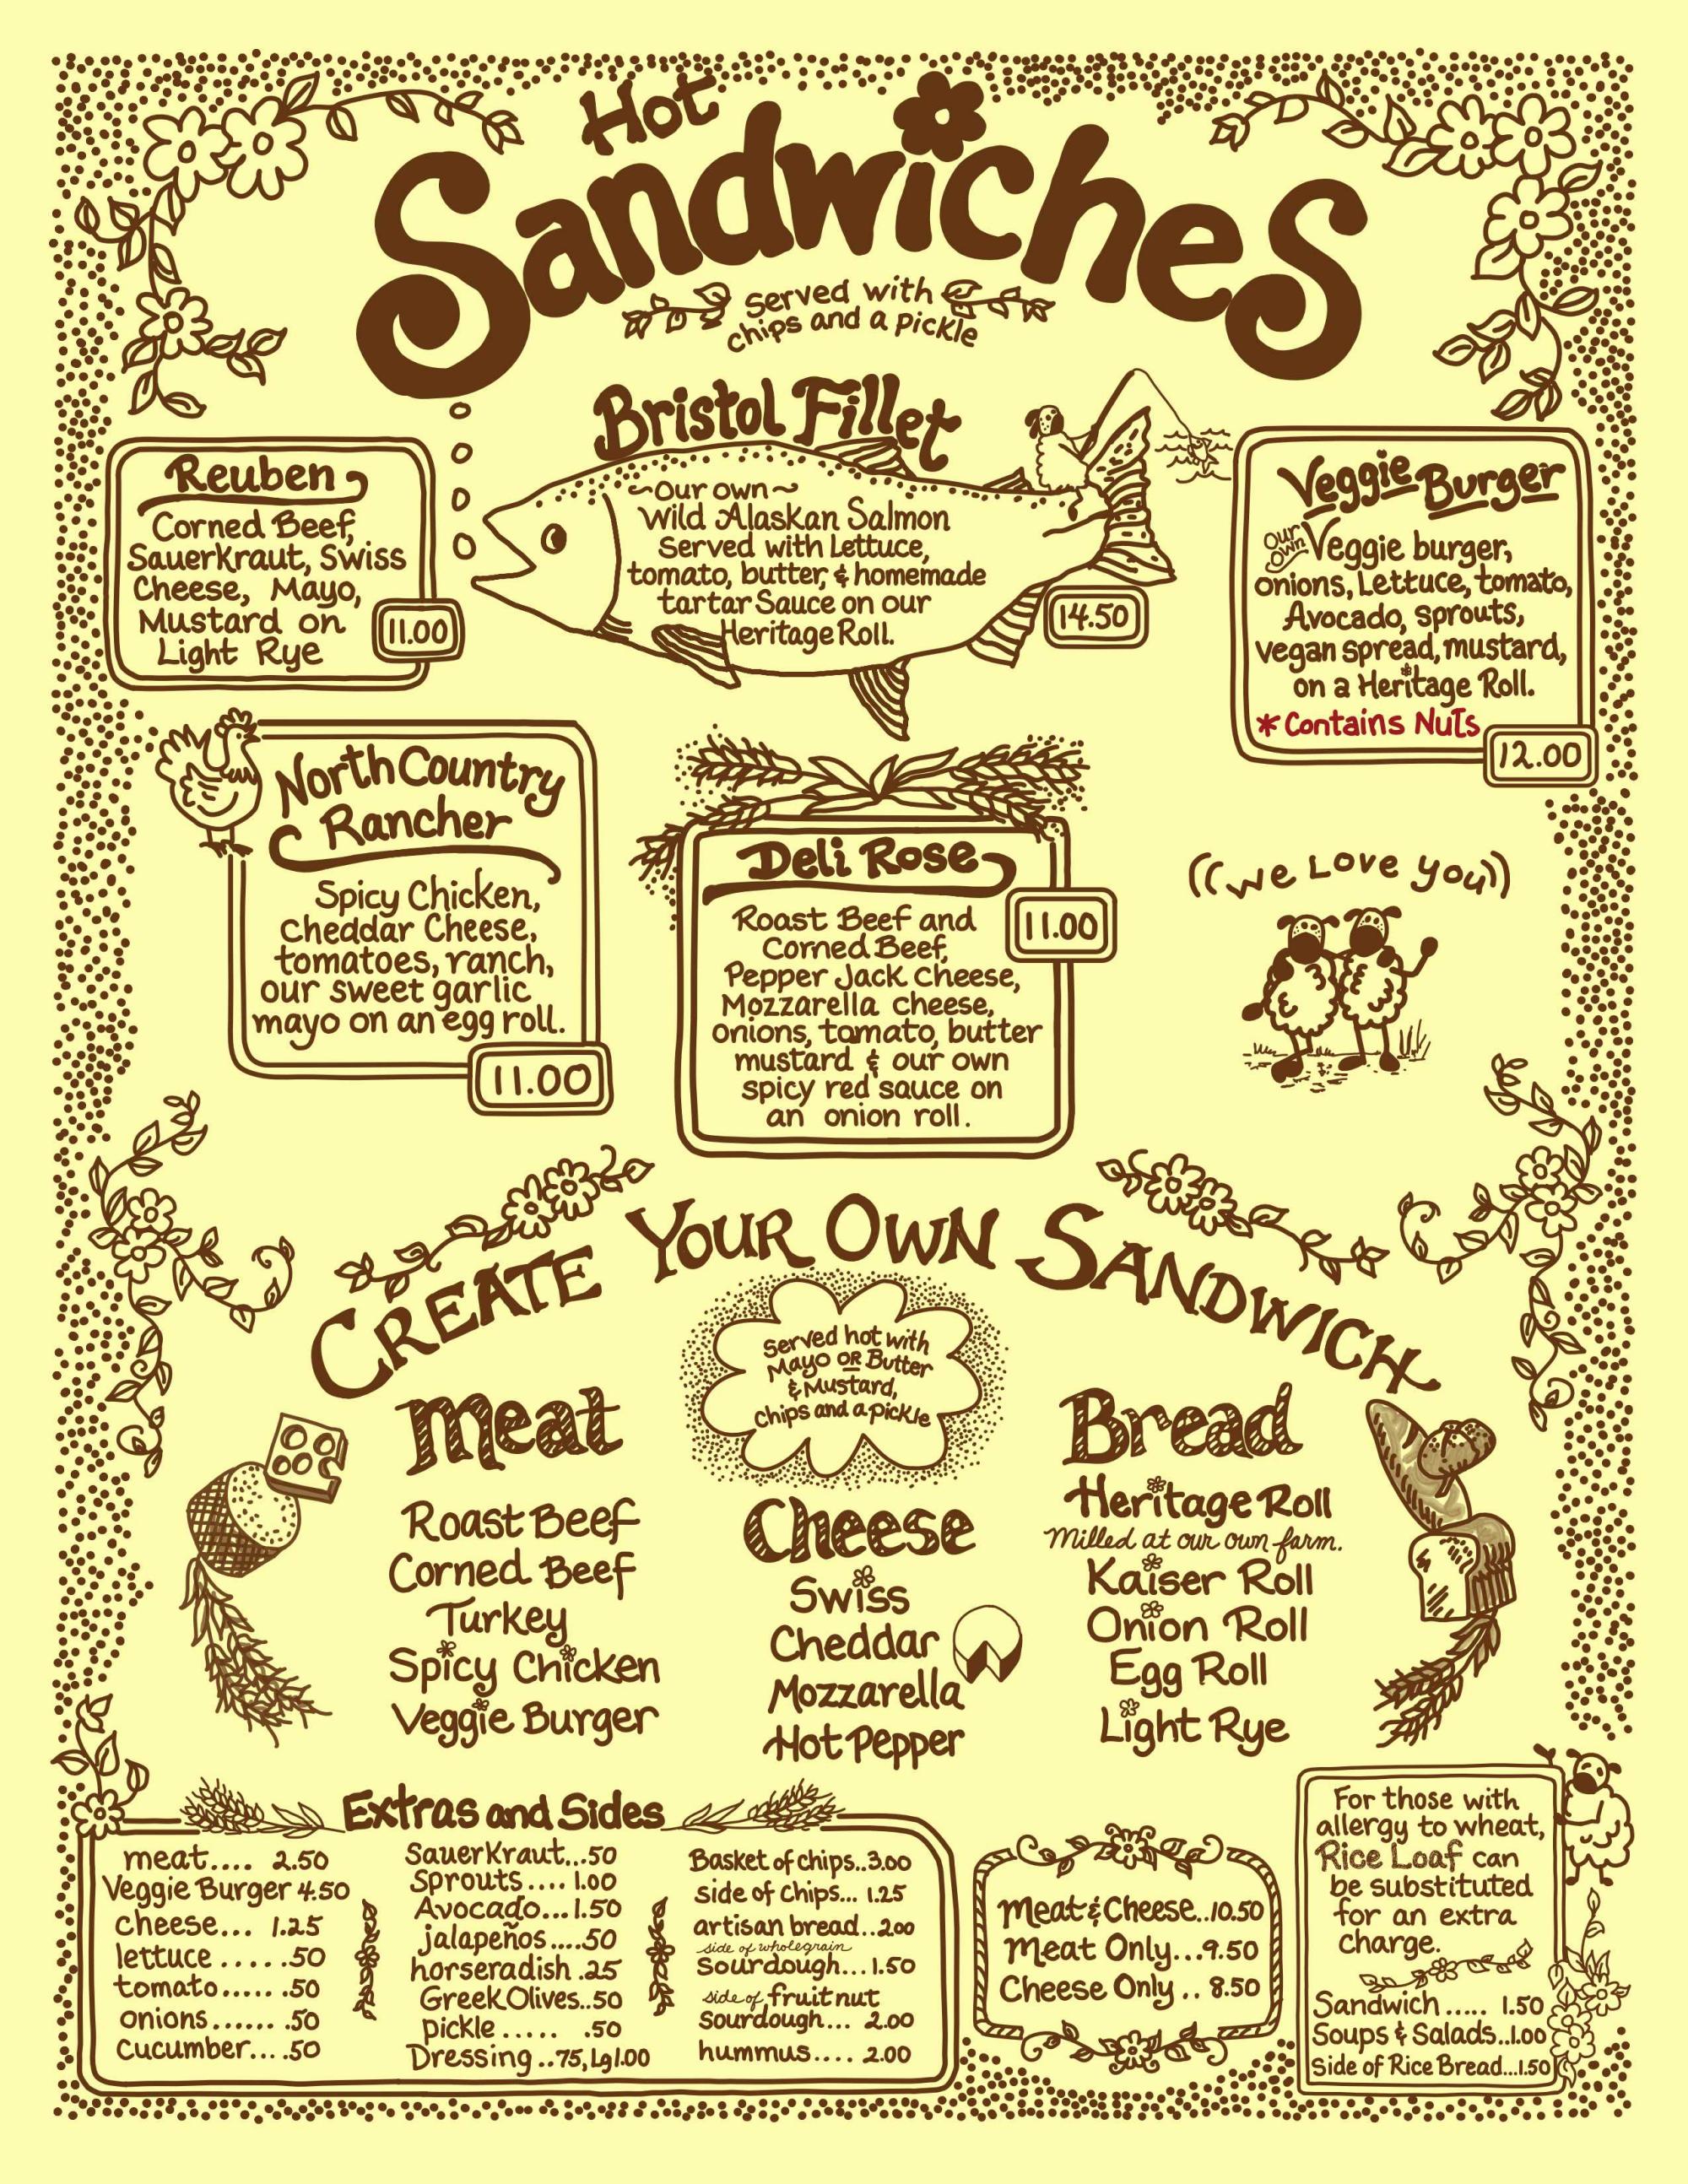 Hot
Sandwiches
served with
chips and a pickle
Bristol Fillet
~Our own~
Wild Alaskan Salmon
Served with Lettuce,
tomato, butter, & homemade
tartar Sauce on our
Heritage Roll.
14.50
Reuben
Corned Beef,
Sauerkraut, Swiss
Cheese, Mayo,
Mustard on
Light Rye
11.00
Veggie Burger
Our Own Veggie burger,
onions, Lettuce, tomato,
Avocado, sprouts,
vegan spread, mustard,
on a Heritage Roll.
* Contains Nuts
12.00
North Country
Rancher
Spicy Chicken,
Cheddar Cheese,
tomatoes, ranch,
our sweet garlic
mayo on an egg roll.
11.00
Deli Rose
Roast Beef and
Corned Beef,
Pepper Jack Cheese,
Mozzarella cheese,
onions, tomato, butter
mustard & our own
spicy red sauce on
an onion roll.
11.00
((we Love you))
CREATE YOUR OWN SANDWICH
Served hot with
Mayo OR Butter
& Mustard,
Chips and a pickle
Meat
Roast Beef
Corned Beef
Turkey
Spicy Chicken
Veggie Burger
Cheese
Swiss
Cheddar
Mozzarella
Hot Pepper
Bread
Heritage Roll
Milled at our own farm.
Kaiser Roll
Onion Roll
Egg Roll
Light Rye
Extras and Sides
meat.... 2.50
Veggie Burger 4.50
cheese... 1.25
lettuce .....50
tomato..... .50
onions...... .50
Cucumber... .50
Sauerkraut...50
Sprouts.... 1.00
Avocado...1.50
jalapeños ....50
horseradish .25
Greek Olives..50
pickle..... .50
Dressing ..75, Lg1.00
Basket of chips..3.00
side of chips... 1.25
artisan bread..2.00
side of wholegrain
Sourdough...1.50
side of fruit nut
Sourdough... 2.00
hummus.... 2.00
Meat & Cheese..10.50
Meat Only...9.50
Cheese Only .. 8.50
For those with
allergy to wheat,
Rice Loaf can
be substituted
for an extra
charge.
Sandwich ..... 1.50
Soups & Salads..1.00
Side of Rice Bread...1.50